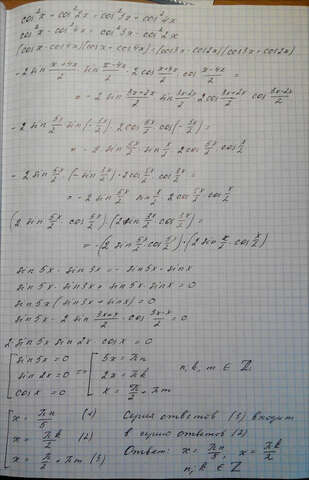 cos²x + cos²2x = cos²3x + cos²4x
cos²x - cos²4x = cos²3x - cos²2x
(cos x - cos 4x)(cos x + cos 4x) = (cos 3x - cos 2x)(cos 3x + cos 2x)
-2 sin (x+4x)/2 · sin (x-4x)/2 · 2 cos (x+4x)/2 · cos (x-4x)/2 =
= -2 sin (3x+2x)/2 · sin (3x-2x)/2 · 2 cos (3x+2x)/2 · cos (3x-2x)/2
-2 sin 5x/2 sin(-3x/2) · 2 cos 5x/2 cos(-3x/2) =
= -2 sin 5x/2 · sin x/2 · 2 cos 5x/2 cos x/2
-2 sin 5x/2 (-sin 3x/2) · 2 cos 5x/2 cos 3x/2 =
= -2 sin 5x/2 · sin x/2 · 2 cos 5x/2 cos x/2
(2 sin 5x/2 · cos 5x/2) · (2 sin 3x/2 · cos 3x/2) =
= -(2 sin 5x/2 cos 5x/2) · (2 sin x/2 · cos x/2)
sin 5x · sin 3x = - sin 5x · sin x
sin 5x · sin 3x + sin 5x · sin x = 0
sin 5x (sin 3x + sin x) = 0
sin 5x · 2 sin (3x+x)/2 · cos (3x-x)/2 = 0
2 sin 5x sin 2x cos x = 0
[ sin 5x = 0 [ 5x = πn
sin 2x = 0 ⇔ 2x = πk n, k, m ∈ Z
cos x = 0 x = π/2 + πm
[ x = πn/5 (1) Серия ответов (3) входит
x = πk/2 (2) в серию ответов (2)
x = π/2 + πm (3) Ответ: x = πn/5, x = πk/2
n, k ∈ Z